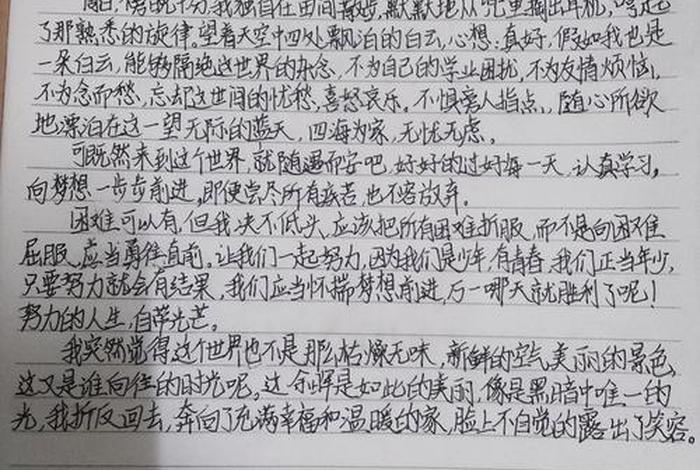 周日,傍晚十分,我独自在田间散步,默默地从兜里掏出耳机,哼起
了那熟悉的旋律。望着天空中四处飘泊的白云,心想:真好,假如我也是
一朵白云,能够隔绝这世界的杂念,不为自己的学业困扰,不为友情烦恼,
不为念而愁,忘却这世间的忧愁,喜怒哀乐,不惧旁人指点,随心所欲
地漂泊在这一望无际的蓝天,四海为家,无忧无虑。
可既然来到这个世界,就随遇而安吧,好好的过好每一天,认真学习,
向梦想一步步前进,即便尝尽所有疾苦,也不容放弃。
困难可以有,但我决不低头,应该把所有困难折服,而不是向困难
屈服,应当勇往直前。让我们一起努力,因为我们是少年,有青春,我们正当年少,
只要努力就会有结果,我们应当怀揣梦想前进,万一哪天就胜利了呢!
努力的人生,自带光芒。
我突然觉得这个世界也不是那么枯燥无味,新鲜的空气,美丽的景色,
这又是谁向往的时光呢。这余晖是如此的美丽,像是黑暗中唯一的
光,我折反回去,奔向了充满幸福和温暖的家,脸上不自觉的露出了笑容。